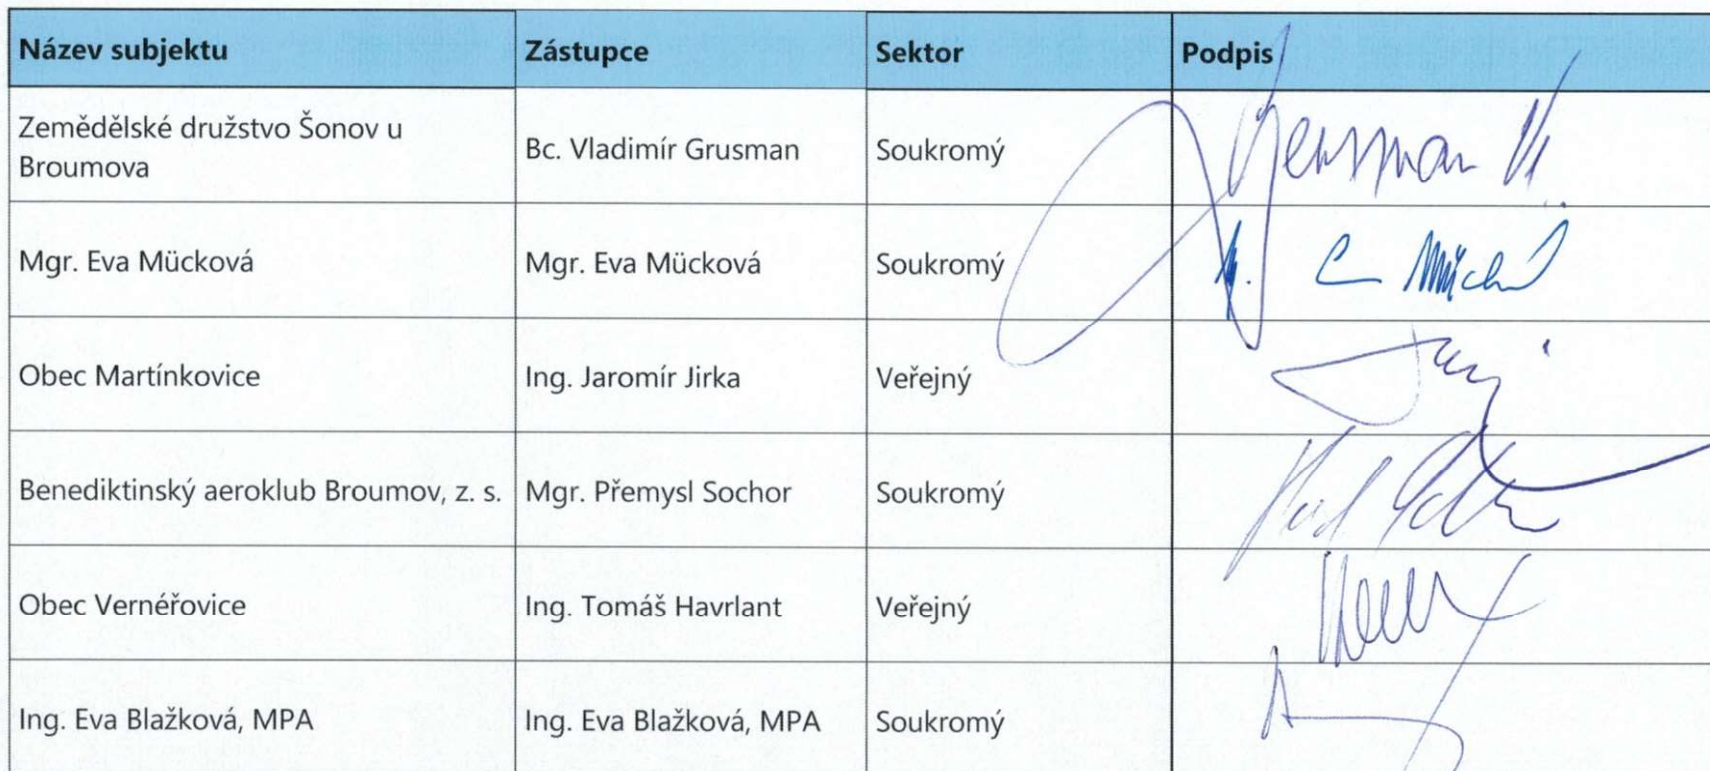 Název subjektu Zástupce Sektor Podpis
Zemědělské družstvo Šonov u
Broumova Bc. Vladimír Grusman Soukromý
Mgr. Eva Mücková Mgr. Eva Mücková Soukromý
Obec Martínkovice Ing. Jaromír Jirka Veřejný
Benediktinský aeroklub Broumov, z. s. Mgr. Přemysl Sochor Soukromý
Obec Vernéřovice Ing. Tomáš Havrlant Veřejný
Ing. Eva Blažková, MPA Ing. Eva Blažková, MPA Soukromý